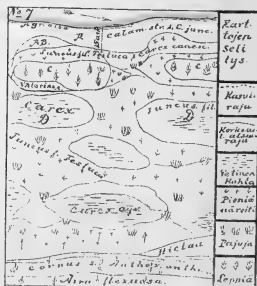 No 7
Agrostis
calam. str. & C. june.
R
AB.
Juncus fil. Festuca & Carex canen.
B
C
B
C
Valeriana
Carex
D
Juncus fil.
D
Juncus f. Festuca
Carex aqv.
pictau
cornus s. Anthox. anth.
Aira flexuosa.
Kart-
tojen
seli
tys.
Kasvi-
raja
raja
Vetinen
kohta
Pieniä
Pajuja
Leppiä